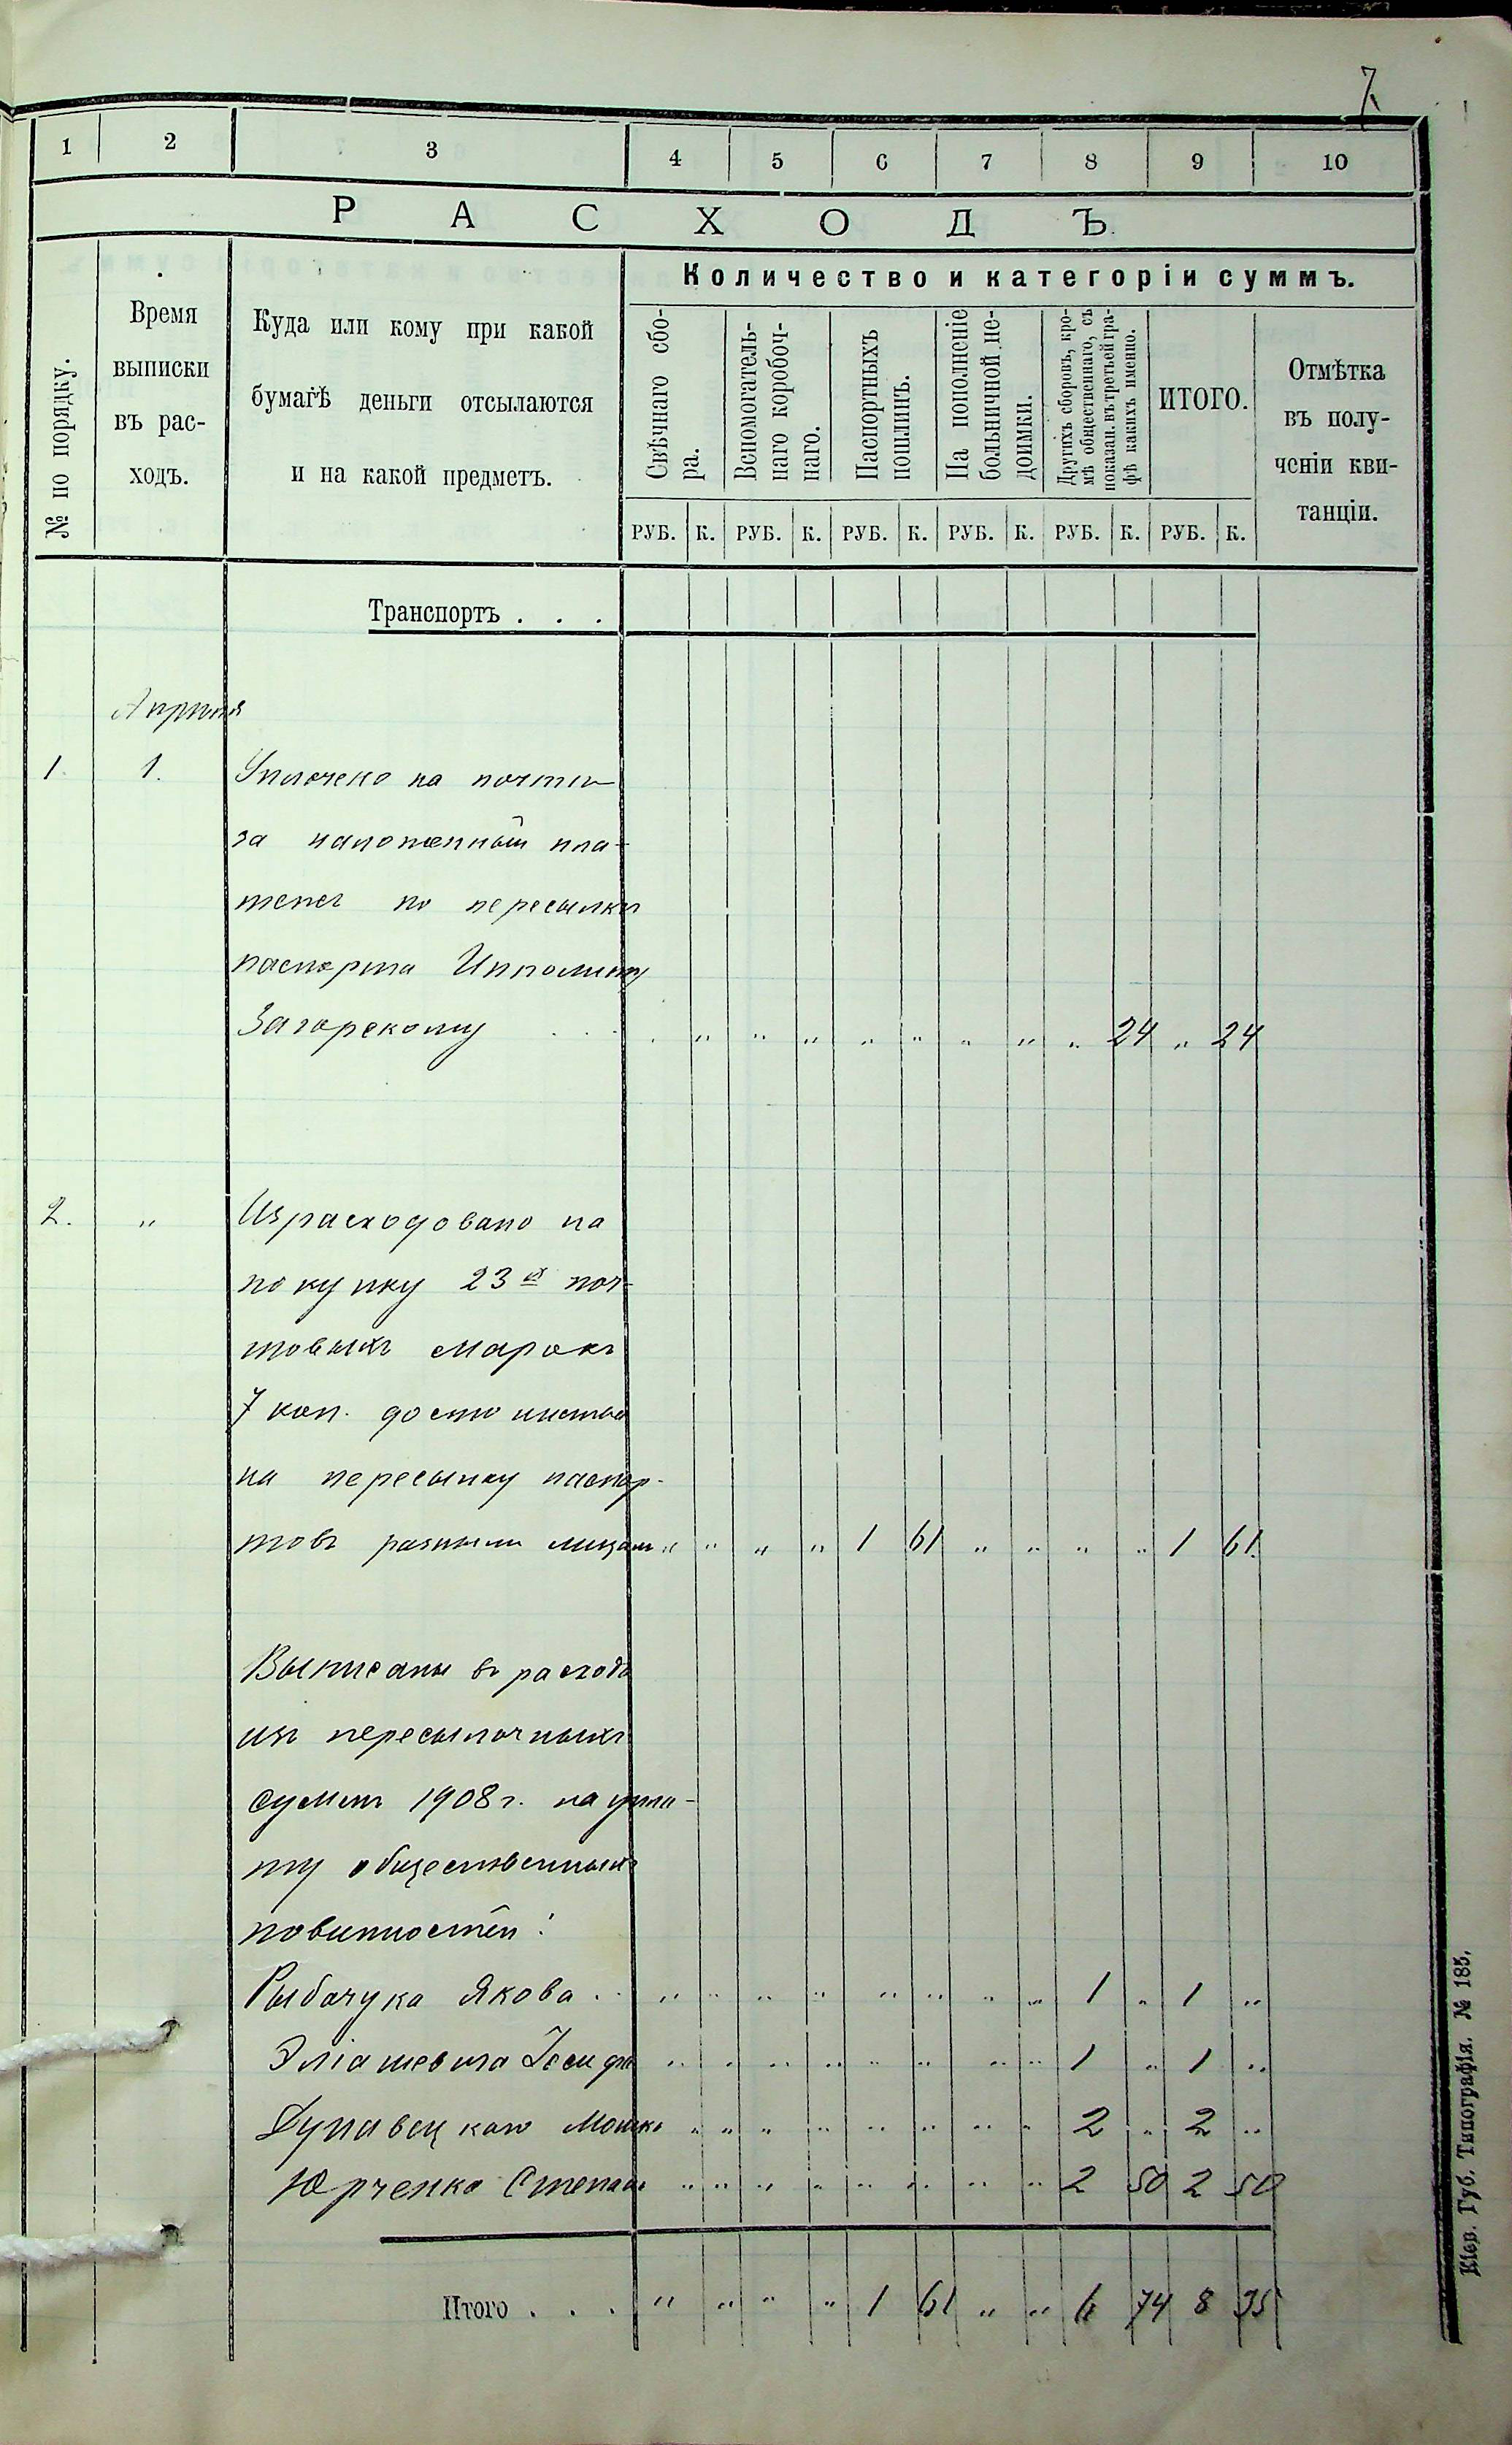 7
1 2 3 4 5 6 7 8 9 10
РАСХОДЪ.
№ по порядку.
Время
выписки
въ рас-
ходъ.
Куда или кому при какой
бумагѣ деньги отсылаются
и на какой предметъ.
Количество и категоріи суммъ.
Свѣчнаго сбо-
ра.
Вспомогатель-
наго коробоч-
наго.
Паспортныхъ
пошлинъ.
На пополненіе
больничной не-
доимки.
Другихъ сборовъ, кро-
мѣ общественнаго, съ
показан. въ третьей гра-
фѣ какихъ именно.
ИТОГО.
Отмѣтка
въ полу-
ченіи кви-
танціи.
РУБ. К. РУБ. К. РУБ. К. РУБ. К. РУБ. К. РУБ. К.
Транспортъ . . .
Апрѣля
1. 1. Уплочено на почтѣ
за наложенный пла-
тежъ по пересылкѣ
паспорта Ипполиту
Загорскому . . . . „ „ „ „ „ „ „ „ 24 „ 24
2. „ Израсходовано на
покупку 23х поч-
товыхъ марокъ
7 коп. достоинства
на пересылку паспор-
товъ разнымъ лицамъ „ „ „ „ 1 61 „ „ „ „ 1 61.
Выписаны въ расходъ
изъ пересылочныхъ
суммъ 1908 г. на упла-
ту общественныхъ
повинностей:
Рыбачука Якова . . „ „ „ „ „ „ „ „ 1 „ 1 „
Эліашевича Іосифа „ „ „ „ „ „ „ „ 1 „ 1 „
Дунавецкаго Мошка „ „ „ „ „ „ „ „ 2 „ 2 „
Юрченко Степана „ „ „ „ „ „ „ „ 2 50 2 50
Итого . . . „ „ „ „ 1 61 „ „ 6 74 8 35
Кіев. Губ. Типографія. № 185.